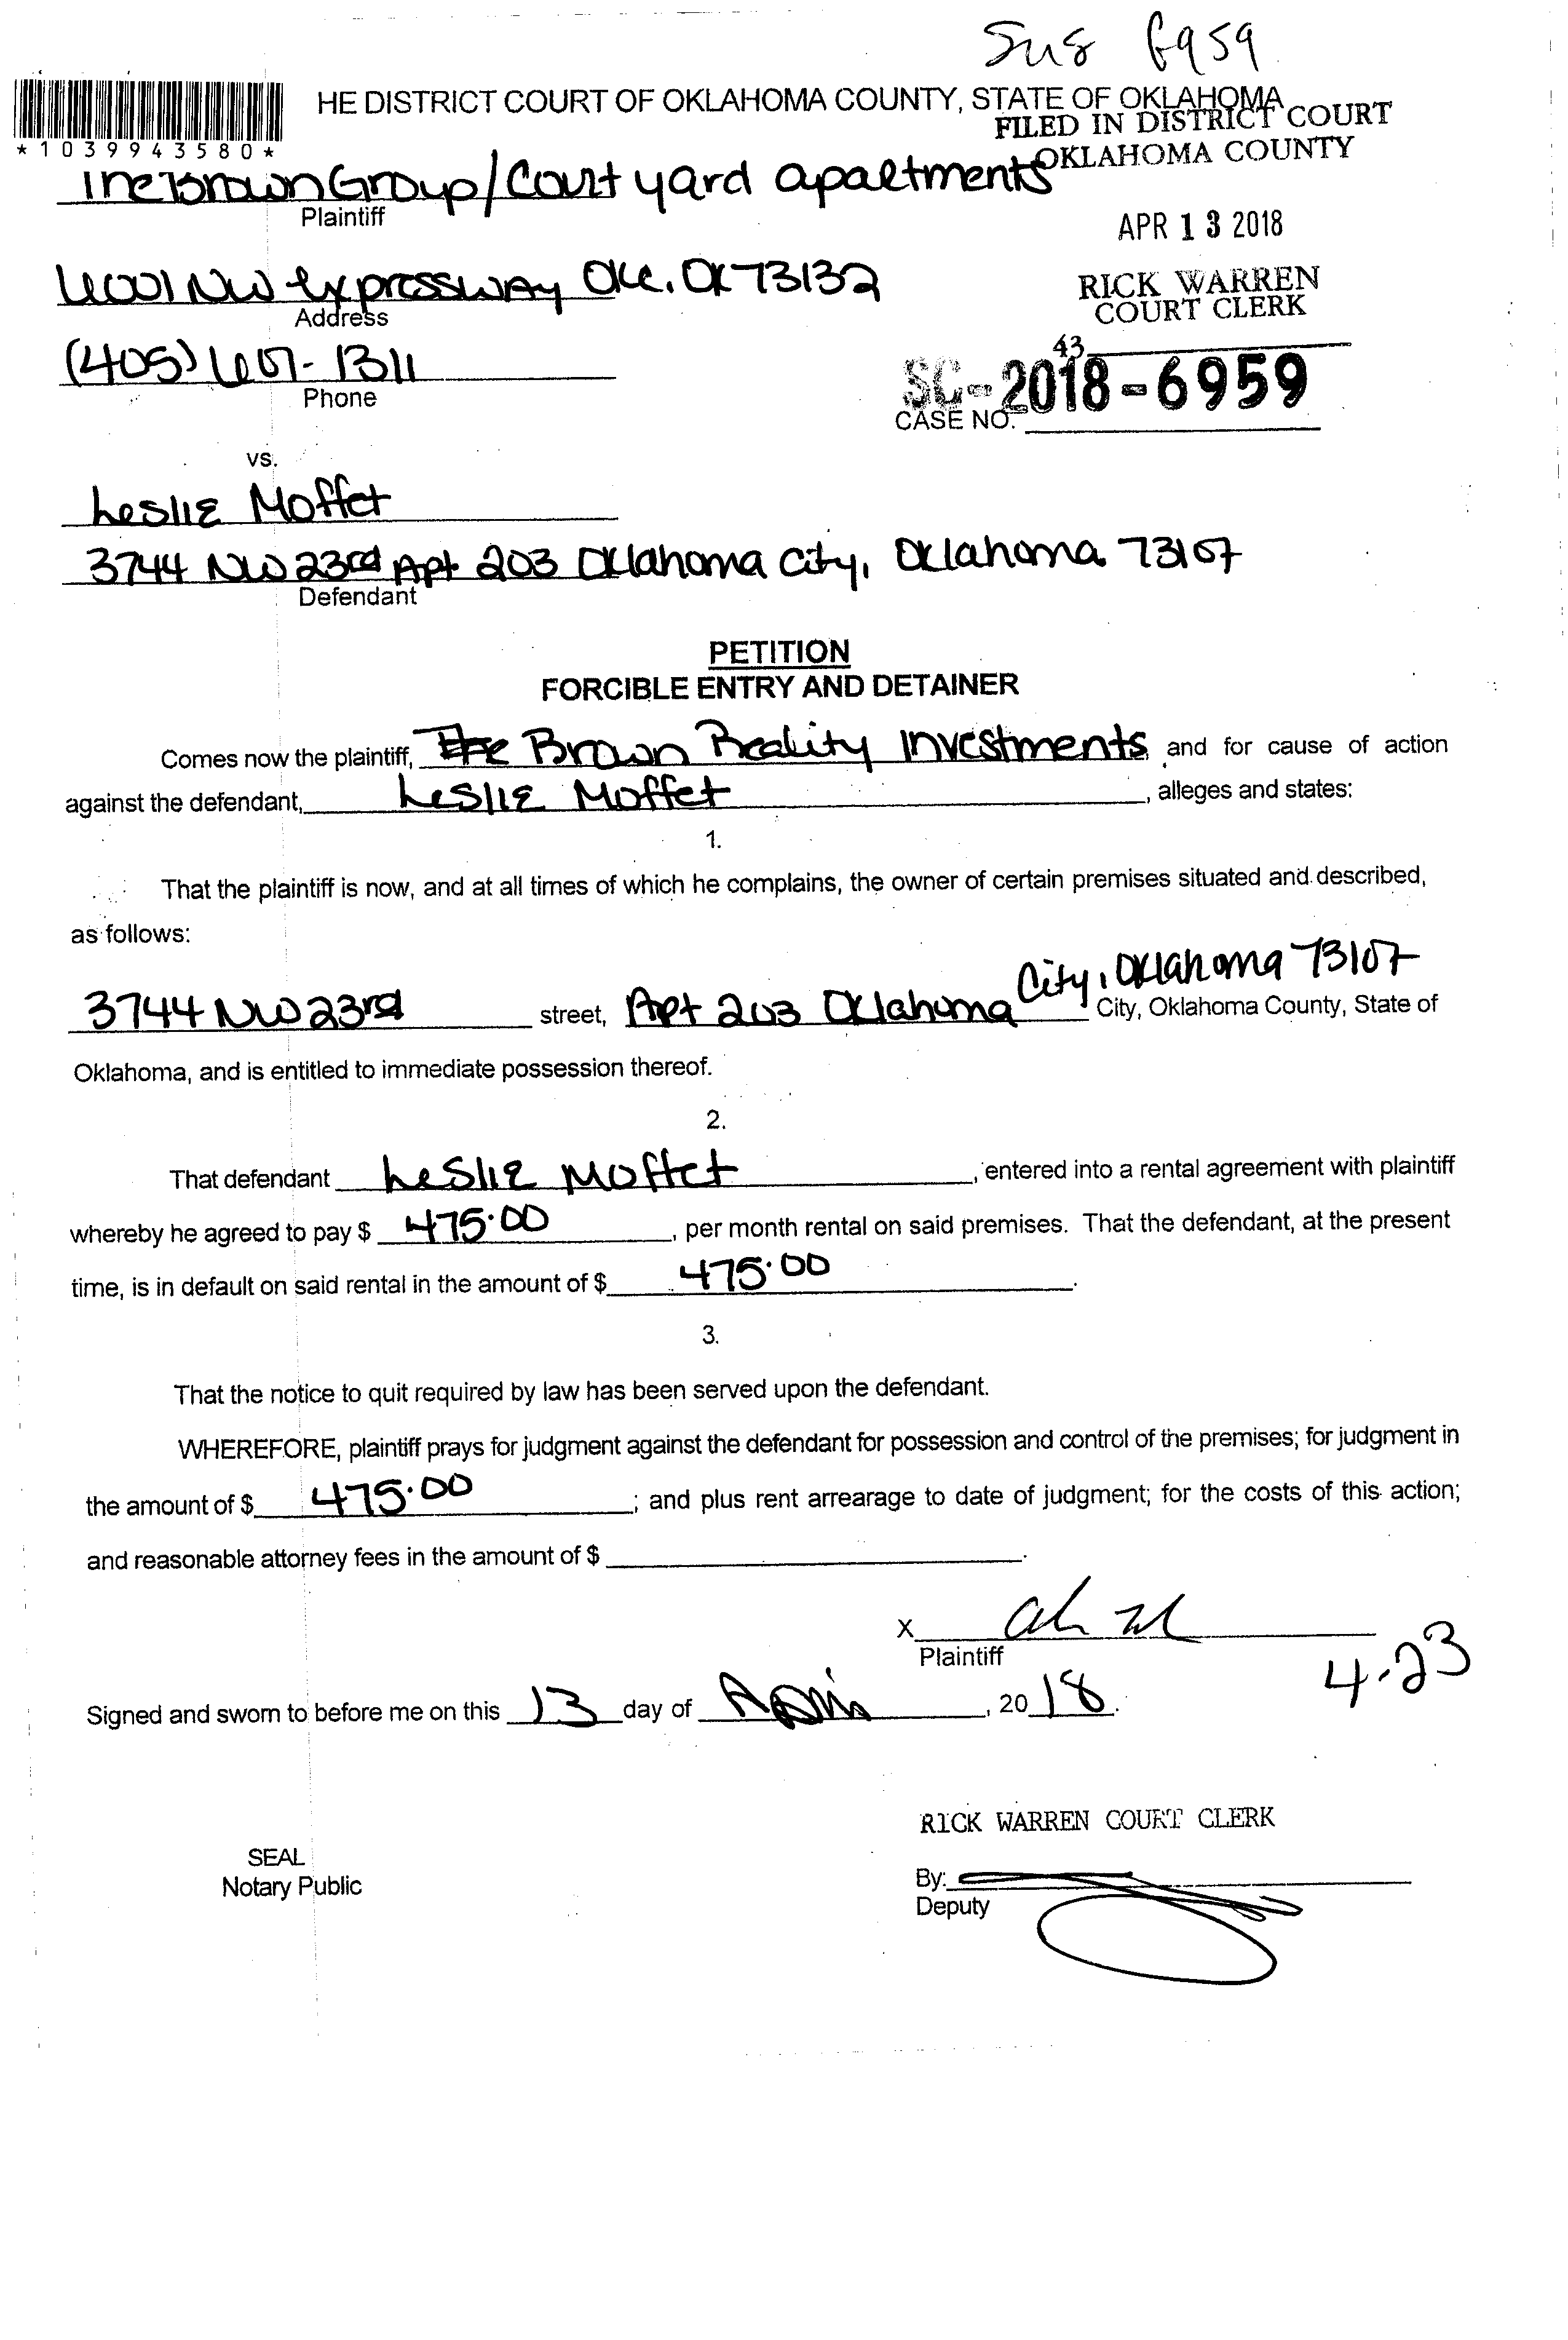 6959
HE DISTRICT COURT OF OKLAHOMA COUNTY, STATE OF OKLAHOMA
FILED IN DISTRICT COURT
OKLAHOMA COUNTY
*1039943580*
The Brown Group/Court yard apartments
Plaintiff
APR 13 2018
6001 NW expressway OKC, OK 73132
Address
RICK WARREN
COURT CLERK
(405) 607-1311
Phone
43
SC-2018-6959
CASE NO.
vs.
Leslie Moffet
3744 NW 23rd Apt 203 Oklahoma City, Oklahoma 73107
Defendant
PETITION
FORCIBLE ENTRY AND DETAINER
Comes now the plaintiff, The Brown Reality Investments, and for cause of action
against the defendant, Leslie Moffet, alleges and states:
1.
That the plaintiff is now, and at all times of which he complains, the owner of certain premises situated and described,
as follows:
3744 NW 23rd street, Apt 203 Oklahoma City, Oklahoma 73107 City, Oklahoma County, State of
Oklahoma, and is entitled to immediate possession thereof.
2.
That defendant Leslie Moffet, entered into a rental agreement with plaintiff
whereby he agreed to pay $ 475.00, per month rental on said premises. That the defendant, at the present
time, is in default on said rental in the amount of $ 475.00.
3.
That the notice to quit required by law has been served upon the defendant.
WHEREFORE, plaintiff prays for judgment against the defendant for possession and control of the premises; for judgment in
the amount of $ 475.00; and plus rent arrearage to date of judgment; for the costs of this action;
and reasonable attorney fees in the amount of $
X
Plaintiff
4-23
Signed and sworn to before me on this 13 day of April, 2018.
RICK WARREN COURT CLERK
SEAL
Notary Public
By:
Deputy